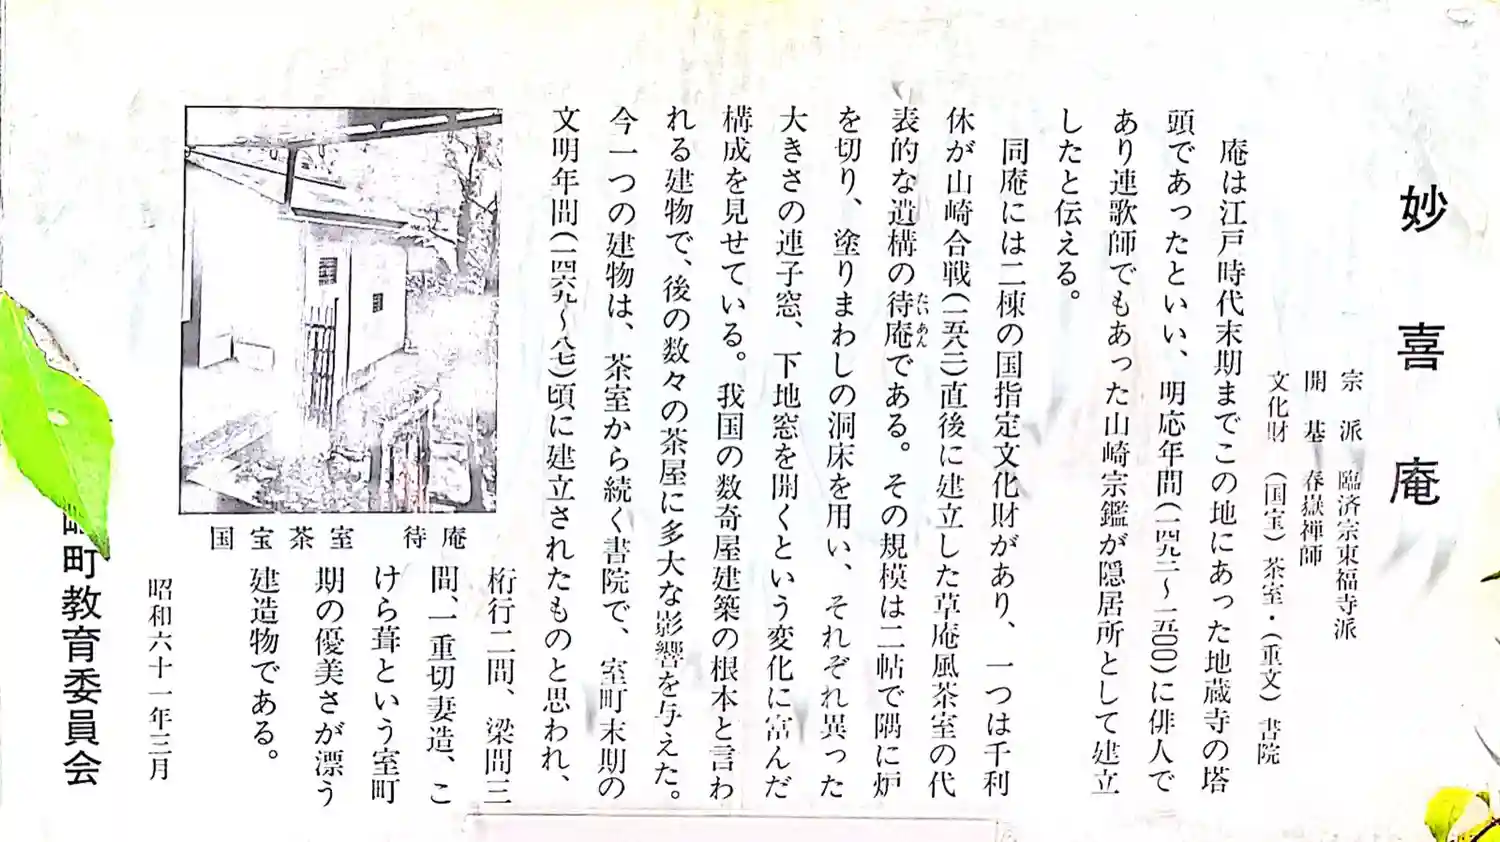 妙喜庵
宗派 臨済宗東福寺派
開基 春嶽禅師
文化財 (国宝)茶室・(重文)書院
庵は江戸時代末期までこの地にあった地蔵寺の塔
頭であったといい、明応年間(一四九二〜一五〇〇)に俳人で
あり連歌師でもあった山崎宗鑑が隠居所として建立
したと伝える。
同庵には二棟の国指定文化財があり、一つは千利
休が山崎合戦(一五八二)直後に建立した草庵風茶室の代
表的な遺構の待庵である。その規模は二帖で隅に炉
たいあん
を切り、塗りまわしの洞床を用い、それぞれ異った
大きさの連子窓、下地窓を開くという変化に富んだ
構成を見せている。我国の数奇屋建築の根本と言わ
れる建物で、後の数々の茶屋に多大な影響を与えた。
今一つの建物は、茶室から続く書院で、室町末期の
文明年間(一四六九〜八七)頃に建立されたものと思われ、
桁行二間、梁間三
間、一重切妻造、こ
けら葺という室町
期の優美さが漂う
建造物である。
国宝茶室 待庵
昭和六十一年三月
町教育委員会